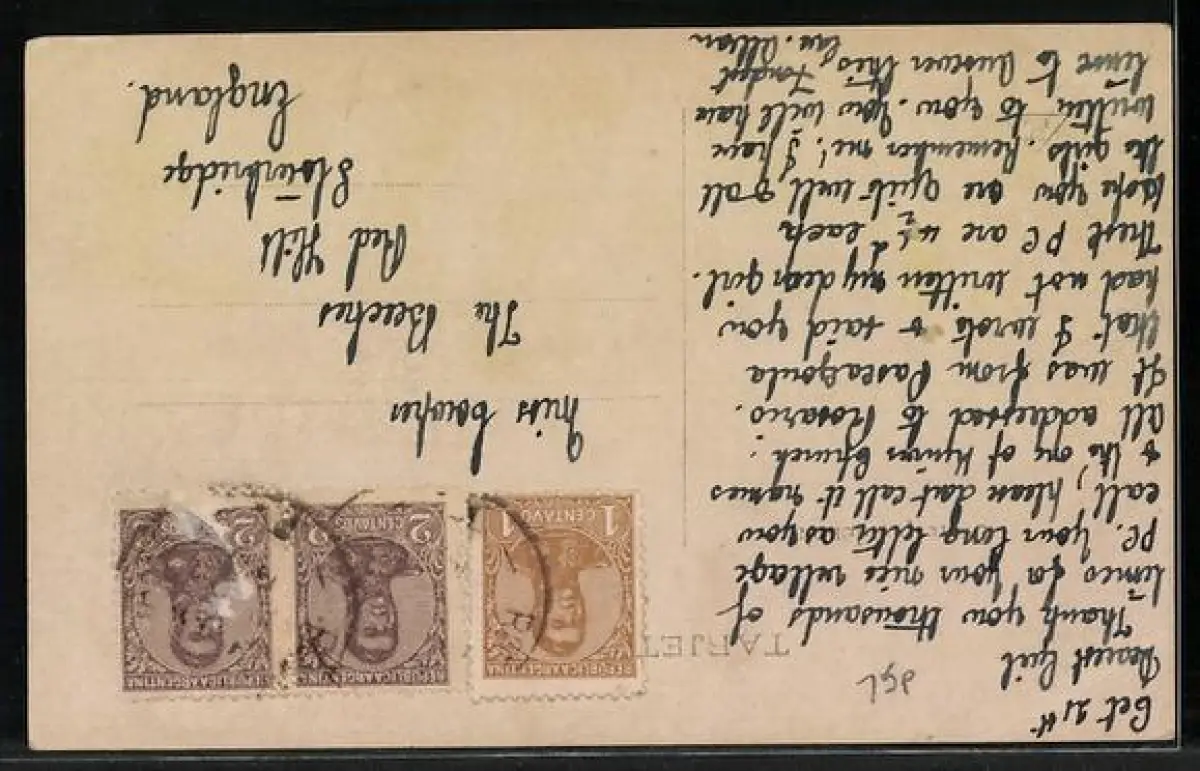 Oct 21st
Dearest
Thank you thousands of
times for your nice village
PC. your long letter as you
call, please dont call it names
& the one of Kinver Church.
All addressed to Rosario.
It was from Pascagoula
that I wrote & said you
had not written my dear girl.
These PC are 4½d each
hope you are quite well & all
the girls. Remember me! I have
written to you. You will have
time to answer this, Fondest
love.
TARJET
Miss Cowper
The Beeches
Red Hill
Stourbridge
England.
REPUBLICA ARGENTINA
1 CENTAVO 1
REPUBLICA ARGENTINA
2 CENTAVOS 2
REPUBLICA ARGENTINA
2 2